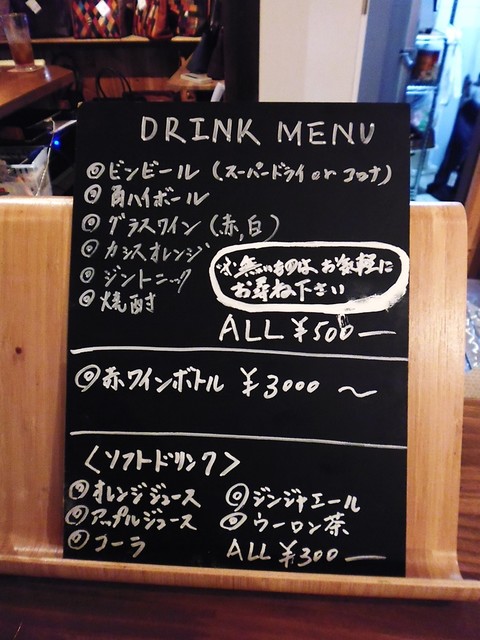 DRINK MENU
◎ビンビール (スーパードライ or コロナ)
◎角ハイボール
◎グラスワイン (赤,白)
◎カシスオレンジ
◎ジントニック
◎焼酎
※無いものは、お気軽に
お尋ね下さい
ALL ¥500―
◎赤ワインボトル ¥3000 ～
〈ソフトドリンク〉
◎オレンジジュース ◎ジンジャエール
◎アップルジュース ◎ウーロン茶
◎コーラ ALL ¥300―